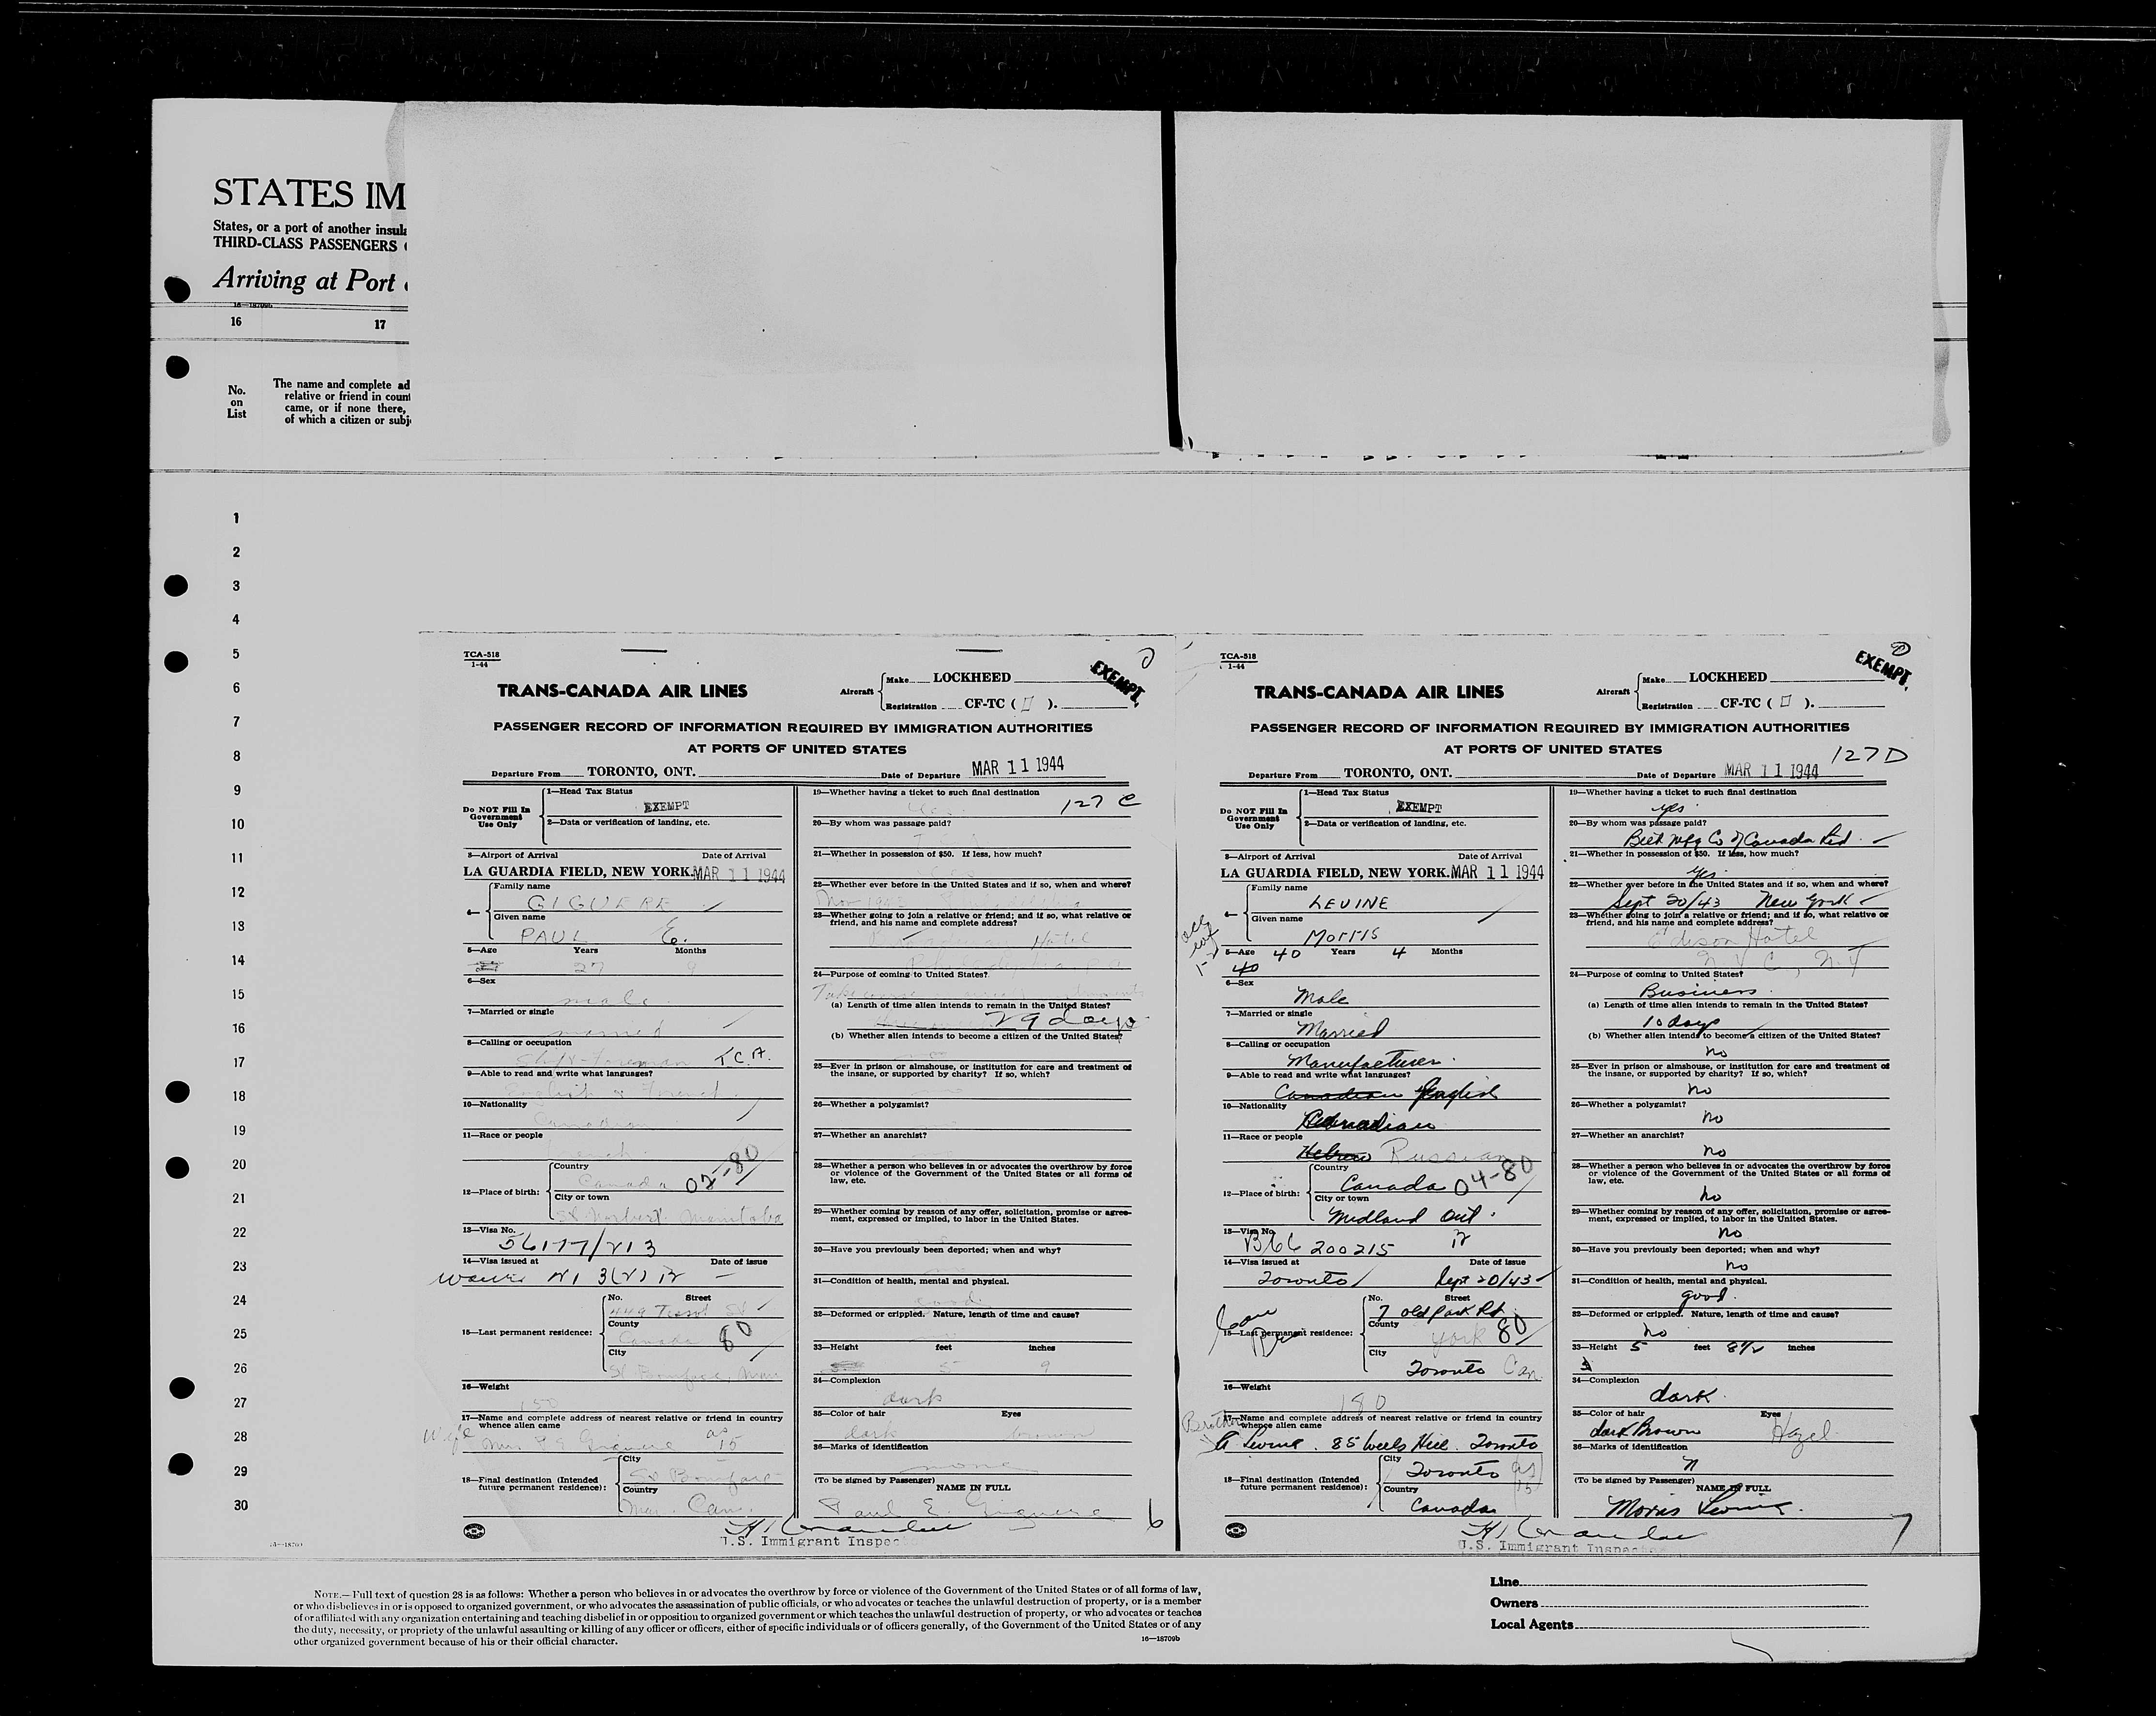 STATES IM
States, or a port of another insula
THIRD-CLASS PASSENGERS
Arriving at Port
16—18709b
16 17
No. on List
The name and complete ad
relative or friend in count
came, or if none there,
of which a citizen or subj
1
2
3
4
5
6
7
8
9
10
11
12
13
14
15
16
17
18
19
20
21
22
23
24
25
26
27
28
29
30
TCA-518
1-44
EXEMPT.
TRANS-CANADA AIR LINES
Aircraft Make LOCKHEED
Registration CF-TC ( ).
PASSENGER RECORD OF INFORMATION REQUIRED BY IMMIGRATION AUTHORITIES
AT PORTS OF UNITED STATES
Departure From TORONTO, ONT. Date of Departure MAR 11 1944
Do NOT Fill In Government Use Only
1—Head Tax Status
EXEMPT
2—Data or verification of landing, etc.
3—Airport of Arrival Date of Arrival
LA GUARDIA FIELD, NEW YORK. MAR 11 1944
4— Family name
GIGUERE
Given name
PAUL E.
5—Age Years Months
27 9
6—Sex
male
7—Married or single
married
8—Calling or occupation
Shift-Foreman T.C.A.
9—Able to read and write what languages?
English & French
10—Nationality
Canadian
11—Race or people
French
12—Place of birth: Country
Canada 02-80
City or town
St Norbert Manitoba
13—Visa No.
56177/213
14—Visa issued at Date of issue
3(2)
15—Last permanent residence: No. Street
449 Tissot St
County
Canada 80
City
St Boniface, Man
16—Weight
150
17—Name and complete address of nearest relative or friend in country
whence alien came
Wife Mrs Giguere as 15
18—Final destination (Intended
future permanent residence): City
St Boniface
Country
Man. Can.
19—Whether having a ticket to such final destination
127 C
20—By whom was passage paid?
21—Whether in possession of $50. If less, how much?
22—Whether ever before in the United States and if so, when and where?
Nov
23—Whether going to join a relative or friend; and if so, what relative or
friend, and his name and complete address?
Hotel
24—Purpose of coming to United States?
(a) Length of time alien intends to remain in the United States?
29 days
(b) Whether alien intends to become a citizen of the United States?
no
25—Ever in prison or almshouse, or institution for care and treatment of
the insane, or supported by charity? If so, which?
26—Whether a polygamist?
27—Whether an anarchist?
28—Whether a person who believes in or advocates the overthrow by force
or violence of the Government of the United States or all forms of
law, etc.
29—Whether coming by reason of any offer, solicitation, promise or agree-
ment, expressed or implied, to labor in the United States.
30—Have you previously been deported; when and why?
31—Condition of health, mental and physical.
good
32—Deformed or crippled. Nature, length of time and cause?
33—Height feet inches
5 9
34—Complexion
dark
35—Color of hair Eyes
dark brown
36—Marks of identification
none
(To be signed by Passenger)
NAME IN FULL
Paul E. Giguere
6
U.S. Immigrant Inspec
TCA-518
1-44
EXEMPT.
TRANS-CANADA AIR LINES
Aircraft Make LOCKHEED
Registration CF-TC ( ).
PASSENGER RECORD OF INFORMATION REQUIRED BY IMMIGRATION AUTHORITIES
AT PORTS OF UNITED STATES
127D
Departure From TORONTO, ONT. Date of Departure MAR 11 1944
Do NOT Fill In Government Use Only
1—Head Tax Status
EXEMPT
2—Data or verification of landing, etc.
3—Airport of Arrival Date of Arrival
LA GUARDIA FIELD, NEW YORK. MAR 11 1944
4— Family name
LEVINE
Given name
Morris
5—Age 40 Years 4 Months
40
6—Sex
Male
7—Married or single
Married
8—Calling or occupation
Manufacturer
9—Able to read and write what languages?
Canadian English
10—Nationality
Canadian
11—Race or people
Hebrew Russian
12—Place of birth: Country
Canada 04-80
City or town
Midland Ont.
13—Visa No.
B66 200215
14—Visa issued at Date of issue
Toronto Sept 20/43
15—Last permanent residence: No. Street
7 Old Park Rd
County
York 80
City
Toronto Can.
16—Weight
180
17—Name and complete address of nearest relative or friend in country
whence alien came
Brother
Levine. 85 Wells Hill. Toronto
18—Final destination (Intended
future permanent residence): City
Toronto as 15
Country
Canada
19—Whether having a ticket to such final destination
yes
20—By whom was passage paid?
Belt Mfg Co of Canada Ltd.
21—Whether in possession of $50. If less, how much?
yes
22—Whether ever before in the United States and if so, when and where?
Sept 20/43 New York
23—Whether going to join a relative or friend; and if so, what relative or
friend, and his name and complete address?
Edison Hotel
N Y C, N.Y
24—Purpose of coming to United States?
Business
(a) Length of time alien intends to remain in the United States?
10 days
(b) Whether alien intends to become a citizen of the United States?
no
25—Ever in prison or almshouse, or institution for care and treatment of
the insane, or supported by charity? If so, which?
no
26—Whether a polygamist?
no
27—Whether an anarchist?
no
28—Whether a person who believes in or advocates the overthrow by force
or violence of the Government of the United States or all forms of
law, etc.
no
29—Whether coming by reason of any offer, solicitation, promise or agree-
ment, expressed or implied, to labor in the United States.
no
30—Have you previously been deported; when and why?
no
31—Condition of health, mental and physical.
good
32—Deformed or crippled. Nature, length of time and cause?
no
33—Height 5 feet 8½ inches
34—Complexion
dark
35—Color of hair Eyes
dark Brown Hazel
36—Marks of identification
(To be signed by Passenger)
NAME IN FULL
Morris Levine
7
U.S. Immigrant Inspector
NOTE.—Full text of question 28 is as follows: Whether a person who believes in or advocates the overthrow by force or violence of the Government of the United States or of all forms of law,
or who disbelieves in or is opposed to organized government, or who advocates the assassination of public officials, or who advocates or teaches the unlawful destruction of property, or is a member
of or affiliated with any organization entertaining and teaching disbelief in or opposition to organized government or which teaches the unlawful destruction of property, or who advocates or teaches
the duty, necessity, or propriety of the unlawful assaulting or killing of any officer or officers, either of specific individuals or of officers generally, of the Government of the United States or of any
other organized government because of his or their official character.
16—18709b
Line
Owners
Local Agents